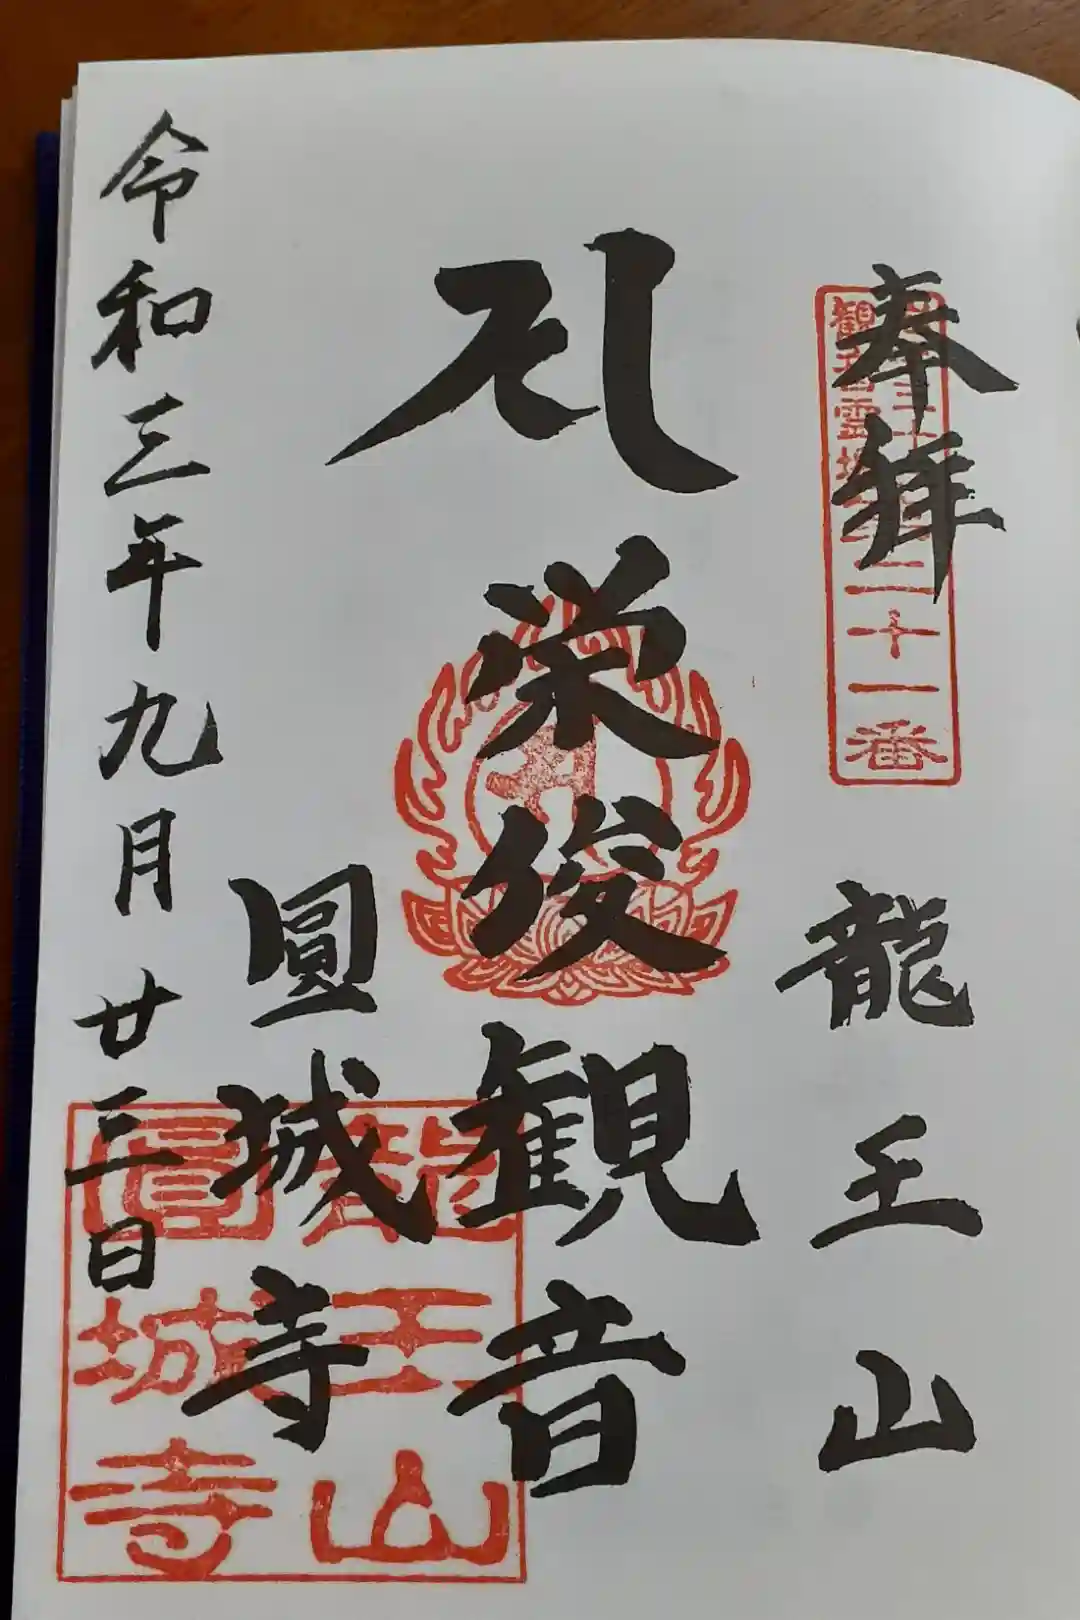 奉拝　龍王山
観音霊場
二十一番
栄俊観音
圓城寺
令和三年九月廿三日
龍王山
圓城寺